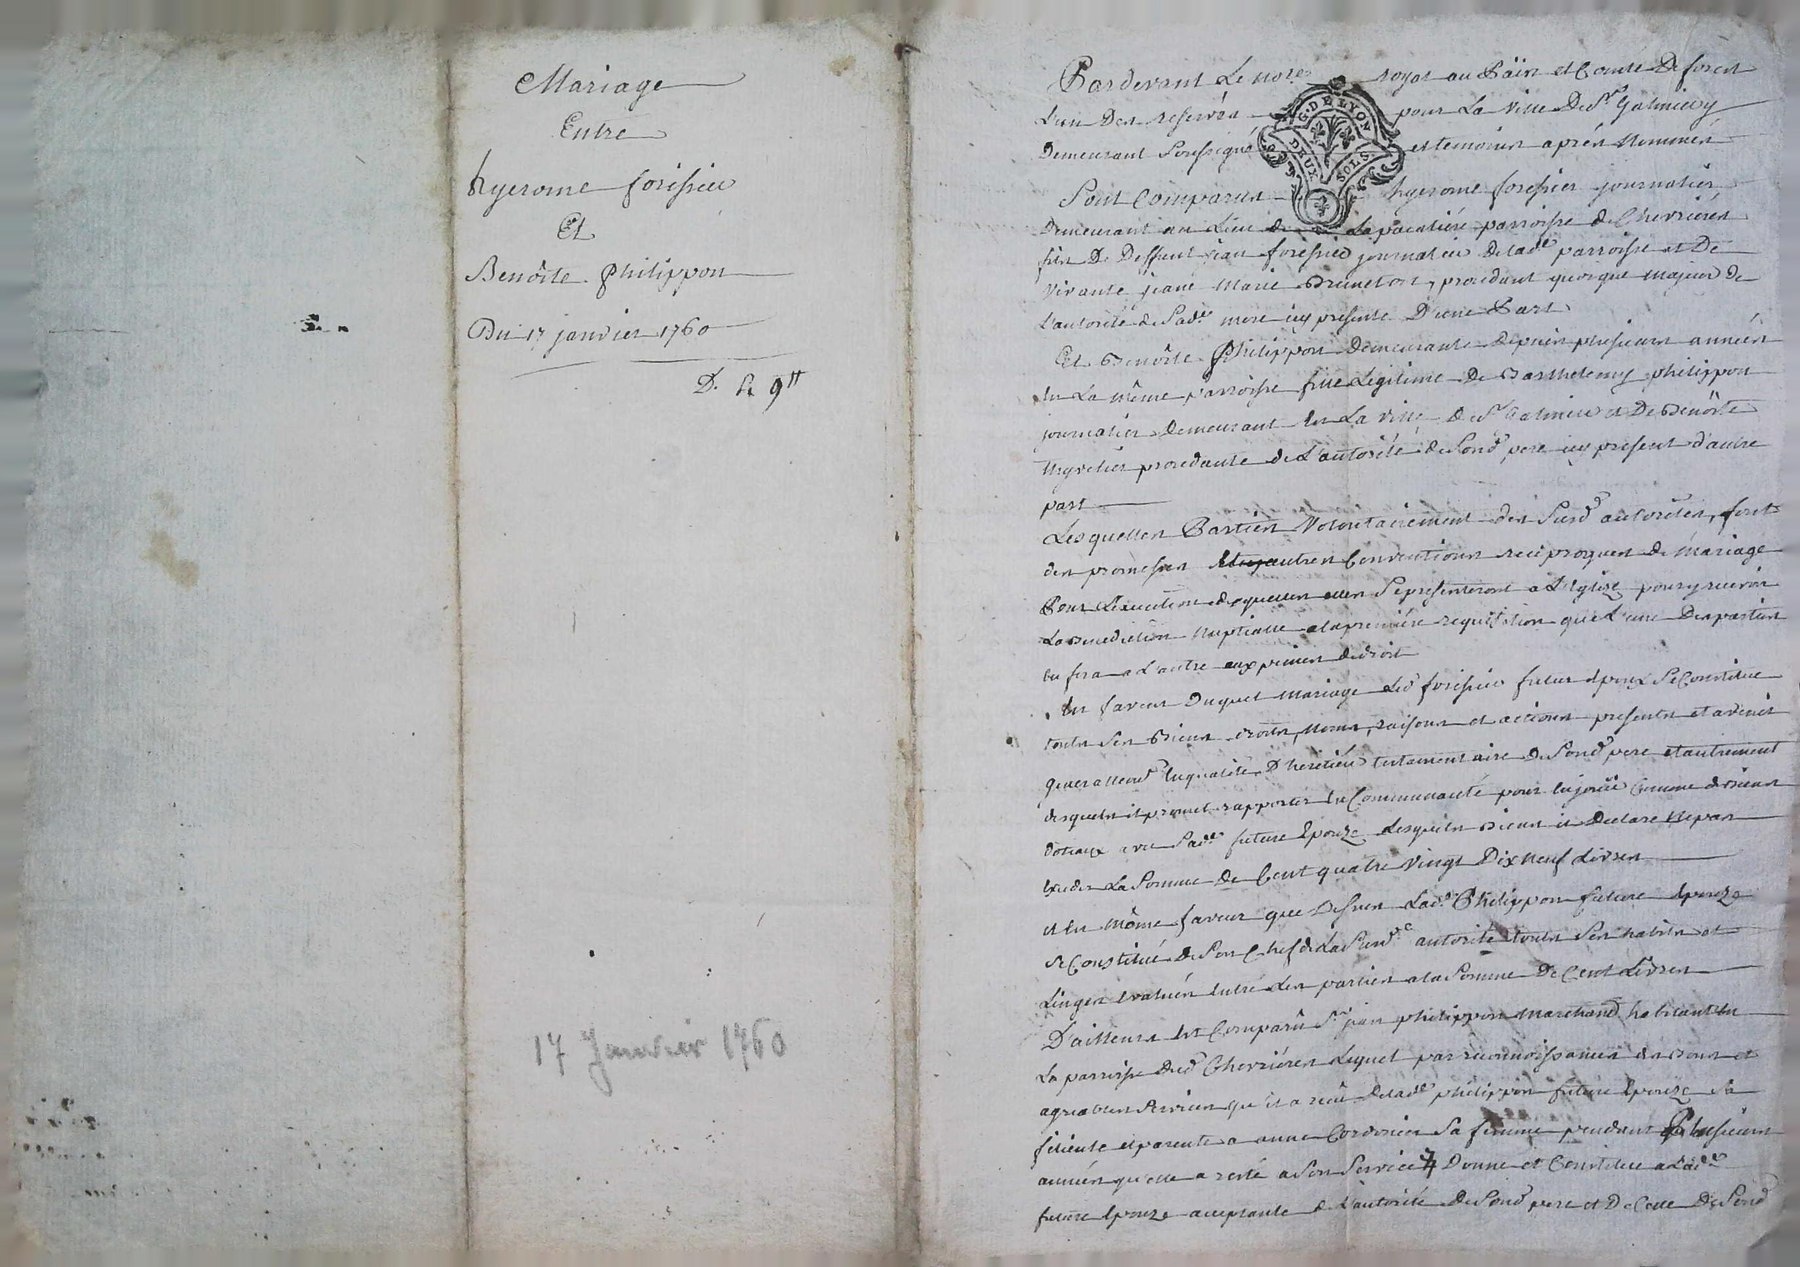 Mariage
Entre
hyerome forissier
Et
Benoîte Philippon
Du 17 janvier 1760
D. 9tt
17 Janvier 1760
G. DE LYON
DEUX SOLS
Pardevant Le nore royal au Païs et Comté De forest
L'un Des reservés pour La Ville De St Galmier
Demeurant Soussigné et temoins aprés Nommés
Sont Comparus hyerome forissier journalier
Demeurant au Lieu de Lapacaliere parroisse de Chevrieres
fils De Deffunt jean forissier journalier De lade parroisse et De
Vivante jeane Marie Bruneton, procedant quoique majeur de
L'autorité de Sade mere icy presente D'une Part
Et Benoîte Philippon Demeurante depuis plusieurs années
en La même parroisse fille Legitime De Barthelemy philippon
journalier Demeurant en La Ville De St Galmier et De Benoîte
procedante de L'autorité de Sond pere icy present d'autre
part
Lesquelles Parties Volontairement des Susd autorités, font
des promesses autres Conventions reciproques de Mariage
Pour L'execution desquelles elles Se presenteront a L'Eglise pour y recevoir
La Benediction Nuptialle a la premiére requisition que L'une Des parties
en fera a L'autre aux peines de droit
En faveur Duquel Mariage Led forissier futur Epoux Se Constitue
touts Ses Biens droits, Noms, raisons et actions presents et avenir
generallemt En qualité D'heretier testamentaire de Sond pere et autrement
desquels il promet rapporter En Communauté pour En jouir Comme de Biens
dotaux avec Sade future Epouze Lesquels Biens il Declare Ne pas
exeder La Somme De Cent quatre Vingt Dix Neuf Livres
et En Même faveur que Dessus Lade Philippon future Epouze
Se Constitué de Son Chef de La Susde autorité touts Ses habits et
Linges Evalués Entre Les parties a la Somme De Cent Livres
D'ailleurs Est Comparû Sr jean philippon Marchand habitant En
La parroisse Dud Chevriéres Lequel par reconnoissance des Bons et
agreables Services qu'il a reçû De lade philippon future Epouze Sa
filleule et parente a anne Cordonier Sa femme pendant Plusieurs
années qu'elle a resté a Son Service Donne et Constitue a Lade
future Epouze acceptante de L'autorité De Sond pere et De Celle De Sond